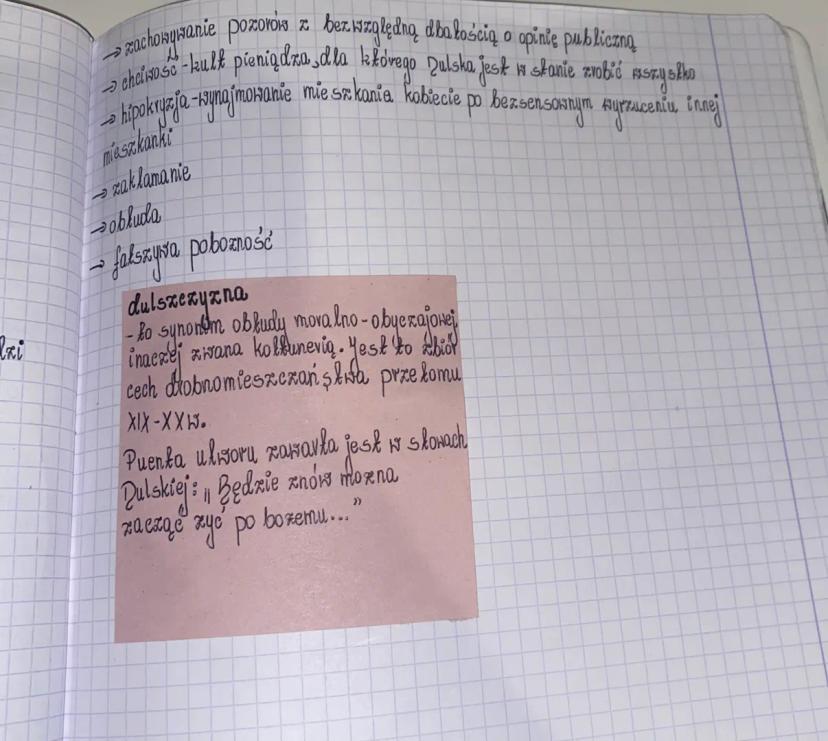 → zachowywanie pozorów z bezwzględną dbałością o opinię publiczną
→ chciwość - kult pieniądza, dla którego Dulska jest w stanie zrobić wszystko
→ hipokryzja - wynajmowanie mieszkania kobiecie po bezsensownym wyrzuceniu innej
mieszkanki
→ zakłamanie
→ obłuda
→ fałszywa pobożność
dulszczyzna
- to synonim obłudy moralno - obyczajowej,
inaczej zwana kołtunerią. Jest to zbiór
cech drobnomieszczaństwa przełomu
XIX - XX w.
Puenta utworu zawarta jest w słowach
Dulskiej: „Będzie znów można
zacząć żyć po bożemu..."